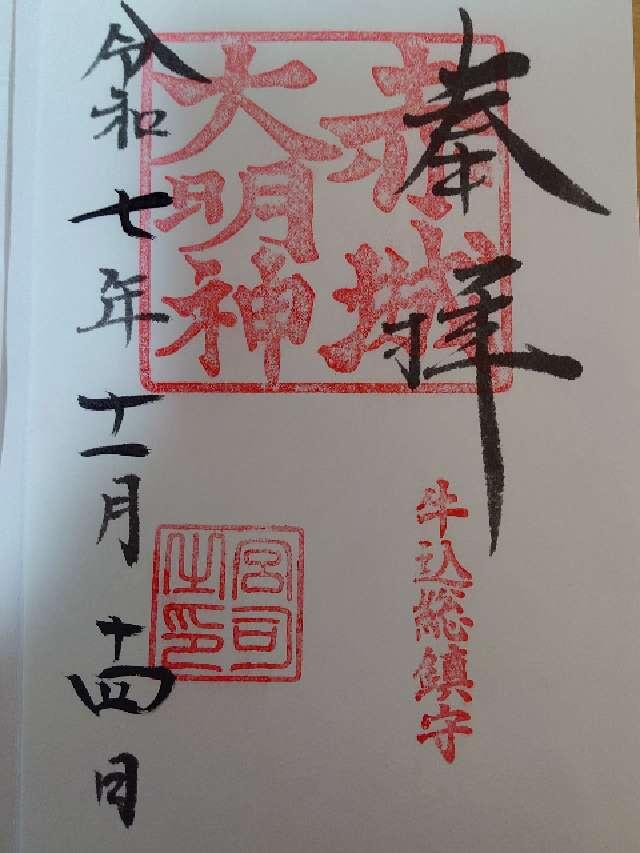 奉拝
赤城
大明神
牛込総鎮守
宮司
之印
令和七年十一月十四日